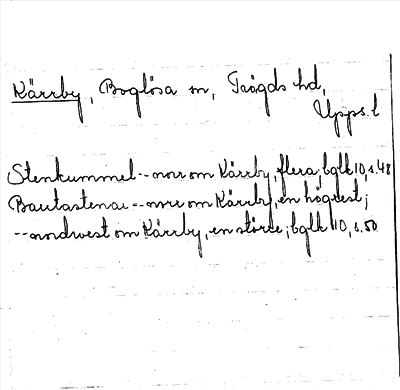 Kärrby, Boglösa sn, Trögds hd,
Upps. l
Stenkummel -- norr om Kärrby, flera; bglk 10, s. 48
Bautastenar -- norr om Kärrby, en högrest;
-- nordvest om Kärrby, en större; bglk 10, s. 50